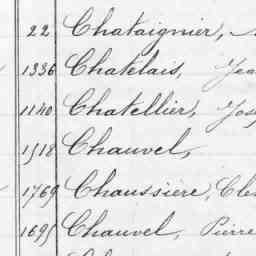 22 Chataignier,
1336 Chatelais, Jea
1140 Chatellier, Jos
1518 Chauvel,
1769 Chaussière, Cle
1695 Chauvel, Pierre